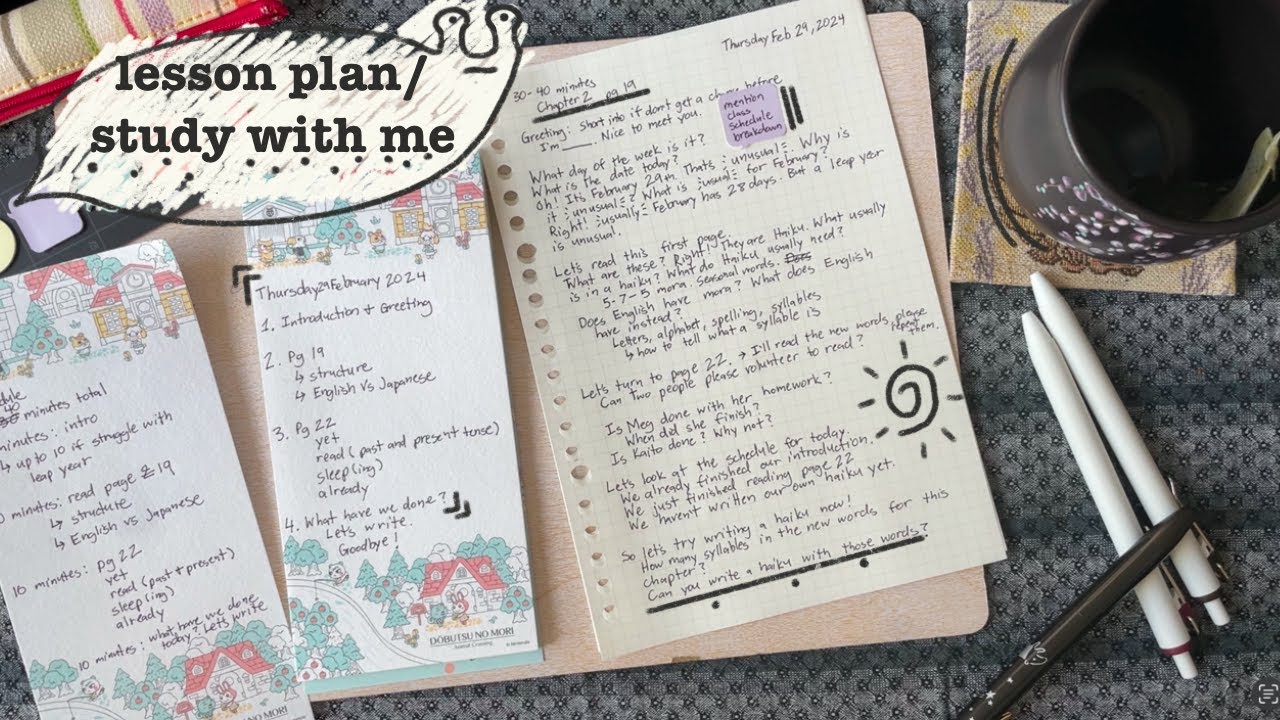 lesson plan/
study with me
dule
40
30 minutes total
minutes: intro
↳ up to 10 if struggle with
leap year
minutes: read page 19
↳ structure
↳ English vs Japanese
10 minutes: pg 22
yet
read (past + present)
sleep(ing)
already
10 minutes: what have we done
today - Lets write
DŌBUTSU NO MORI
Thursday 29 February 2024
1. Introduction + Greeting
2. Pg 19
↳ structure
↳ English vs Japanese
3. Pg 22
yet
read (past and present tense)
sleep(ing)
already
4. What have we done?
Lets write.
Goodbye!
DŌBUTSU NO MORI
Animal Crossing
© Nintendo
Thursday Feb 29, 2024
30-40 minutes
Chapter 2 pg 19
Greeting: short into if dont get a chance before
I'm ___. Nice to meet you.
mention
class
schedule
breakdown
What day of the week is it?
What is the date today?
Oh! Its February 29th. Thats unusual. Why is
it unusual? What is usual for February?
Right! usually February has 28 days. But a leap year
is unusual.
Lets read this first page.
What are these? Right! They are Haiku. What usually
is in a haiku? What do Haiku usually need?
5-7-5 mora. Seasonal words.
Does English have mora? What does English
have instead?
Letters, alphabet, spelling, syllables
↳ how to tell what a syllable is
Lets turn to page 22. → I'll read the new words, please
repeat
them.
Can two people please volunteer to read?
Is Meg done with her homework?
When did she finish?
Is Kaito done? Why not?
Lets look at the schedule for today.
We already finished our introduction.
We just finished reading page 22
We haven't written our own haiku yet.
So lets try writing a haiku now!
How many syllables in the new words for this
chapter?
Can you write a haiku with those words?